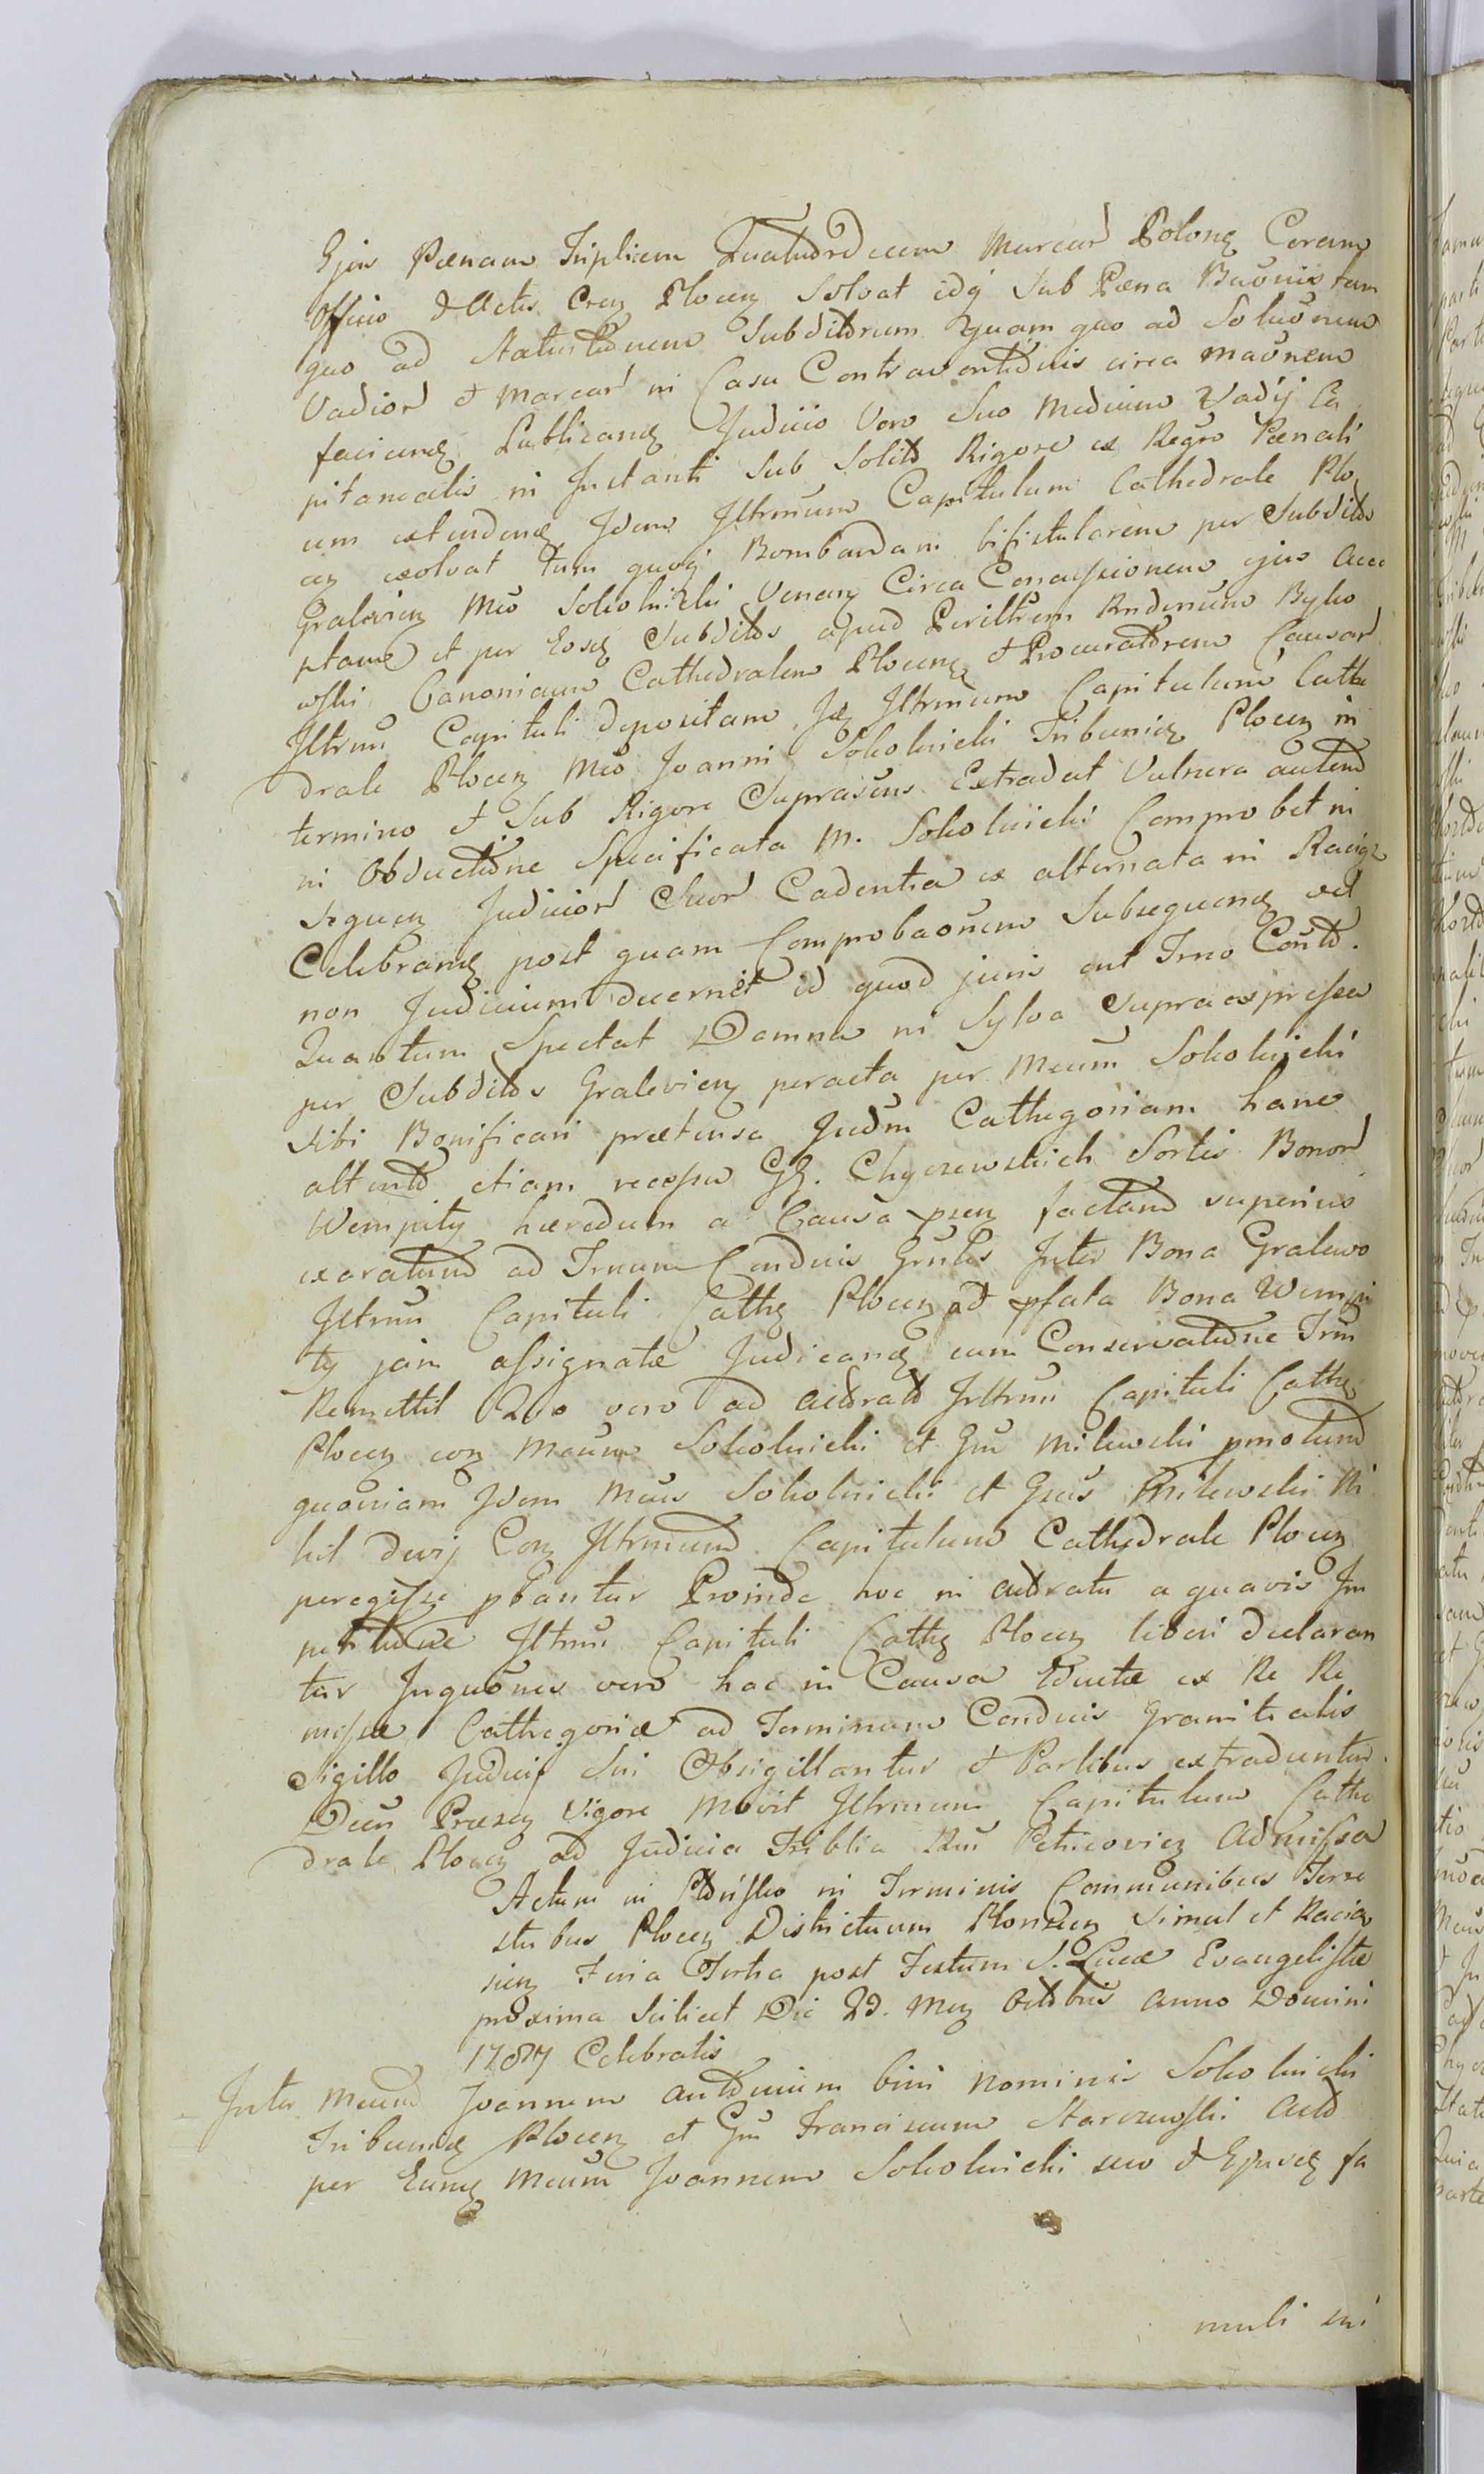 Ejus Pœnam Triplicem Quatuordecem Marcar Polonq Coram
Officio & Actis Crez Plocen Solvat idq Sub Pœna Baonis tam
quo ad Statutionem Subditorum quam quo ad Soluonem
Vadior & Marcar in Casu Contraventionis circa maonem
faciend Publicand Judicio Vero Suo Medium Vadij Ca
pitanealis in Instanti Sub Solito Rigore ex Regro Pœnali
cum extendend Idem Illrmum Capitulum Cathedrale Plo
cen exolvat tum quoq Bombardam bifistularem per Subditos
Gralevien Mco Sokolnicki Venan Circa Concessionem ejus Acce
ptam et per Eosd Subditos apud Perillrem Rndernum Byko
wski Canonicum Cathedralem Plocen & Procuratorem Causar
Illrmi Capituli depositam Id Illrmum Capitulum Cathe
drale Plocen Mco Joanni Sokolnicki Tribunid Plocen in
termino & Sub Rigore Suprascris Extradat Vulnera autem
in Obductione Specificata M. Sokolnicki Comprobet in
Sequen Judicior Suor Cadentia ex alternata in Raciąż
Celebrand post quam Comprobaonem Subsequend vel
non Judicium decernet id quod juris erit Trno Conto.
Quantum Spectat Damna in Sylva Supra expressa
per Subditos Gralevien peracta per Mcum Sokolnicki
Sibi Bonificari prætensa Judm Cathegoriam hanc
altento etiam recessu GG. Chyczewskich Sortis Bonor
Wempity hæredum a Causa pren factam superius
exaratum ad Trnum Conduis Grnlis Inter Bona Gralewo
Illrmi Capituli Cathe Plocen ad pfata Bona Wempi
ty jam assignatæ Judicand cum Conservatione Trni
Remittit Quo vero ad Actoratu Illrmi Capituli Cathe
Plocen con Mcum Sokolnicki et Gm Milewski pmotum
quoniam Idem Mcus Sokolnicki et Gsus Milewski Ni
hil devij Con Illrmum Capitulum Cathedrale Plocen
peregisse pbantur Proinde hoc in Actoratu a quavis Im
petitione Illrmi Capituli Cathe Plocen liberi declaran
tur Inquones vero hac in Causa Eductæ ex Re Re
missæ Cathegoriæ ad Terminum Conduis Granitialis
Sigillo Judicij Sui Obsigillantur & Partibus extraduntur.
Decti Præsen Vigore Movit Illrmum Capitulum Cathe
drale Plocen ad Judicia Triblia Rni Petricovien Admissa
Actum in Płońsko in Terminis Communibus Terre
stribus Plocen Districtuum Plonscen Simul et Racią
sien Feria Tertia post Festum S. Lucæ Evangelistæ
proxima Scilicet Die 23. Men Octobris Anno Domini
1787 Celebratis
Inter Mcum Joannem Antonium bini nominis Sokolnicki
Tribunid Plocen et Gm Franciscum Starczewski Acto
per Eund Mcum Joannem Sokolnicki suo & Ejusd fa
muli sui